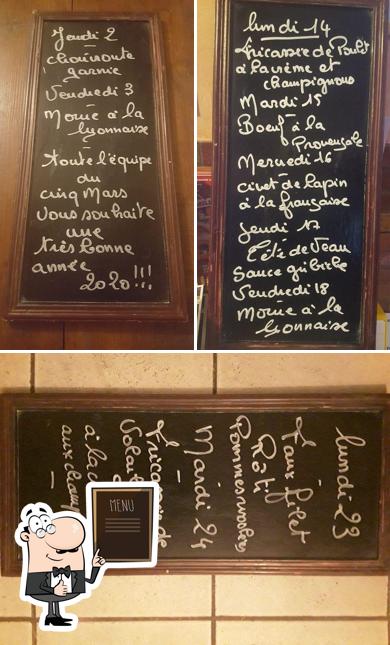 Jeudi 2
—
choucroute
garnie
Vendredi 3
—
Morue à la
lyonnaise
—
toute l'équipe
du
cinq Mars
Vous souhaite
une
très bonne
année
2020!!!
lundi 14
fricassée de Poulet
à la crème et
champignons
Mardi 15
Boeuf à la
Provençale
Mercredi 16
civet de lapin
à la française
Jeudi 17
tête de Veau
sauce gribiche
Vendredi 18
Morue à la
lyonnaise
lundi 23
—
faux filet
Roti
Pommes sautées
Mardi 24
—
fricassée de
Volaille
à la
aux champ
—
MENU